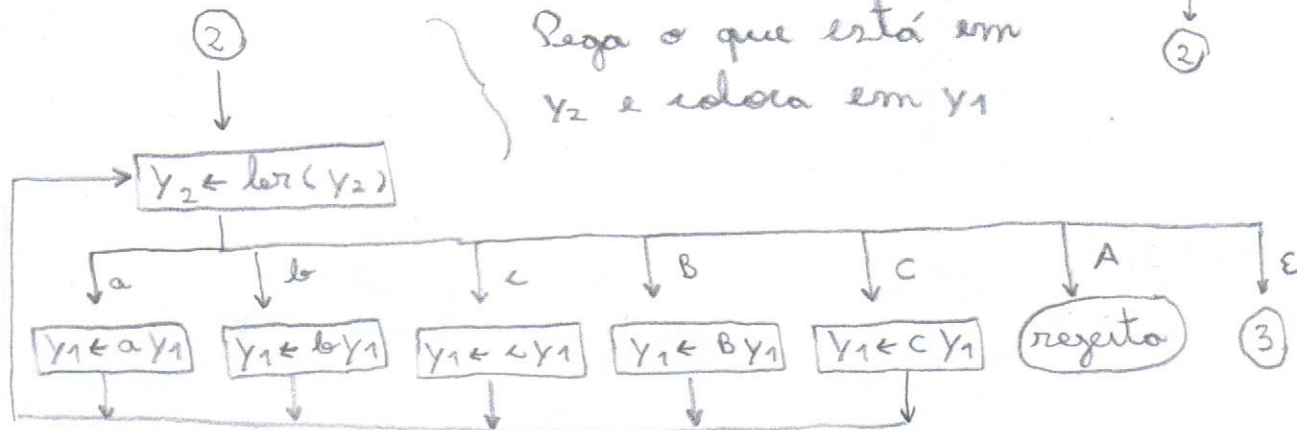 2
Pega o que está em
Y2 e coloca em Y1
2
Y2 ← ler(Y2)
a b c B C A ε
Y1 ← a Y1 Y1 ← b Y1 Y1 ← c Y1 Y1 ← B Y1 Y1 ← C Y1 rejeita 3